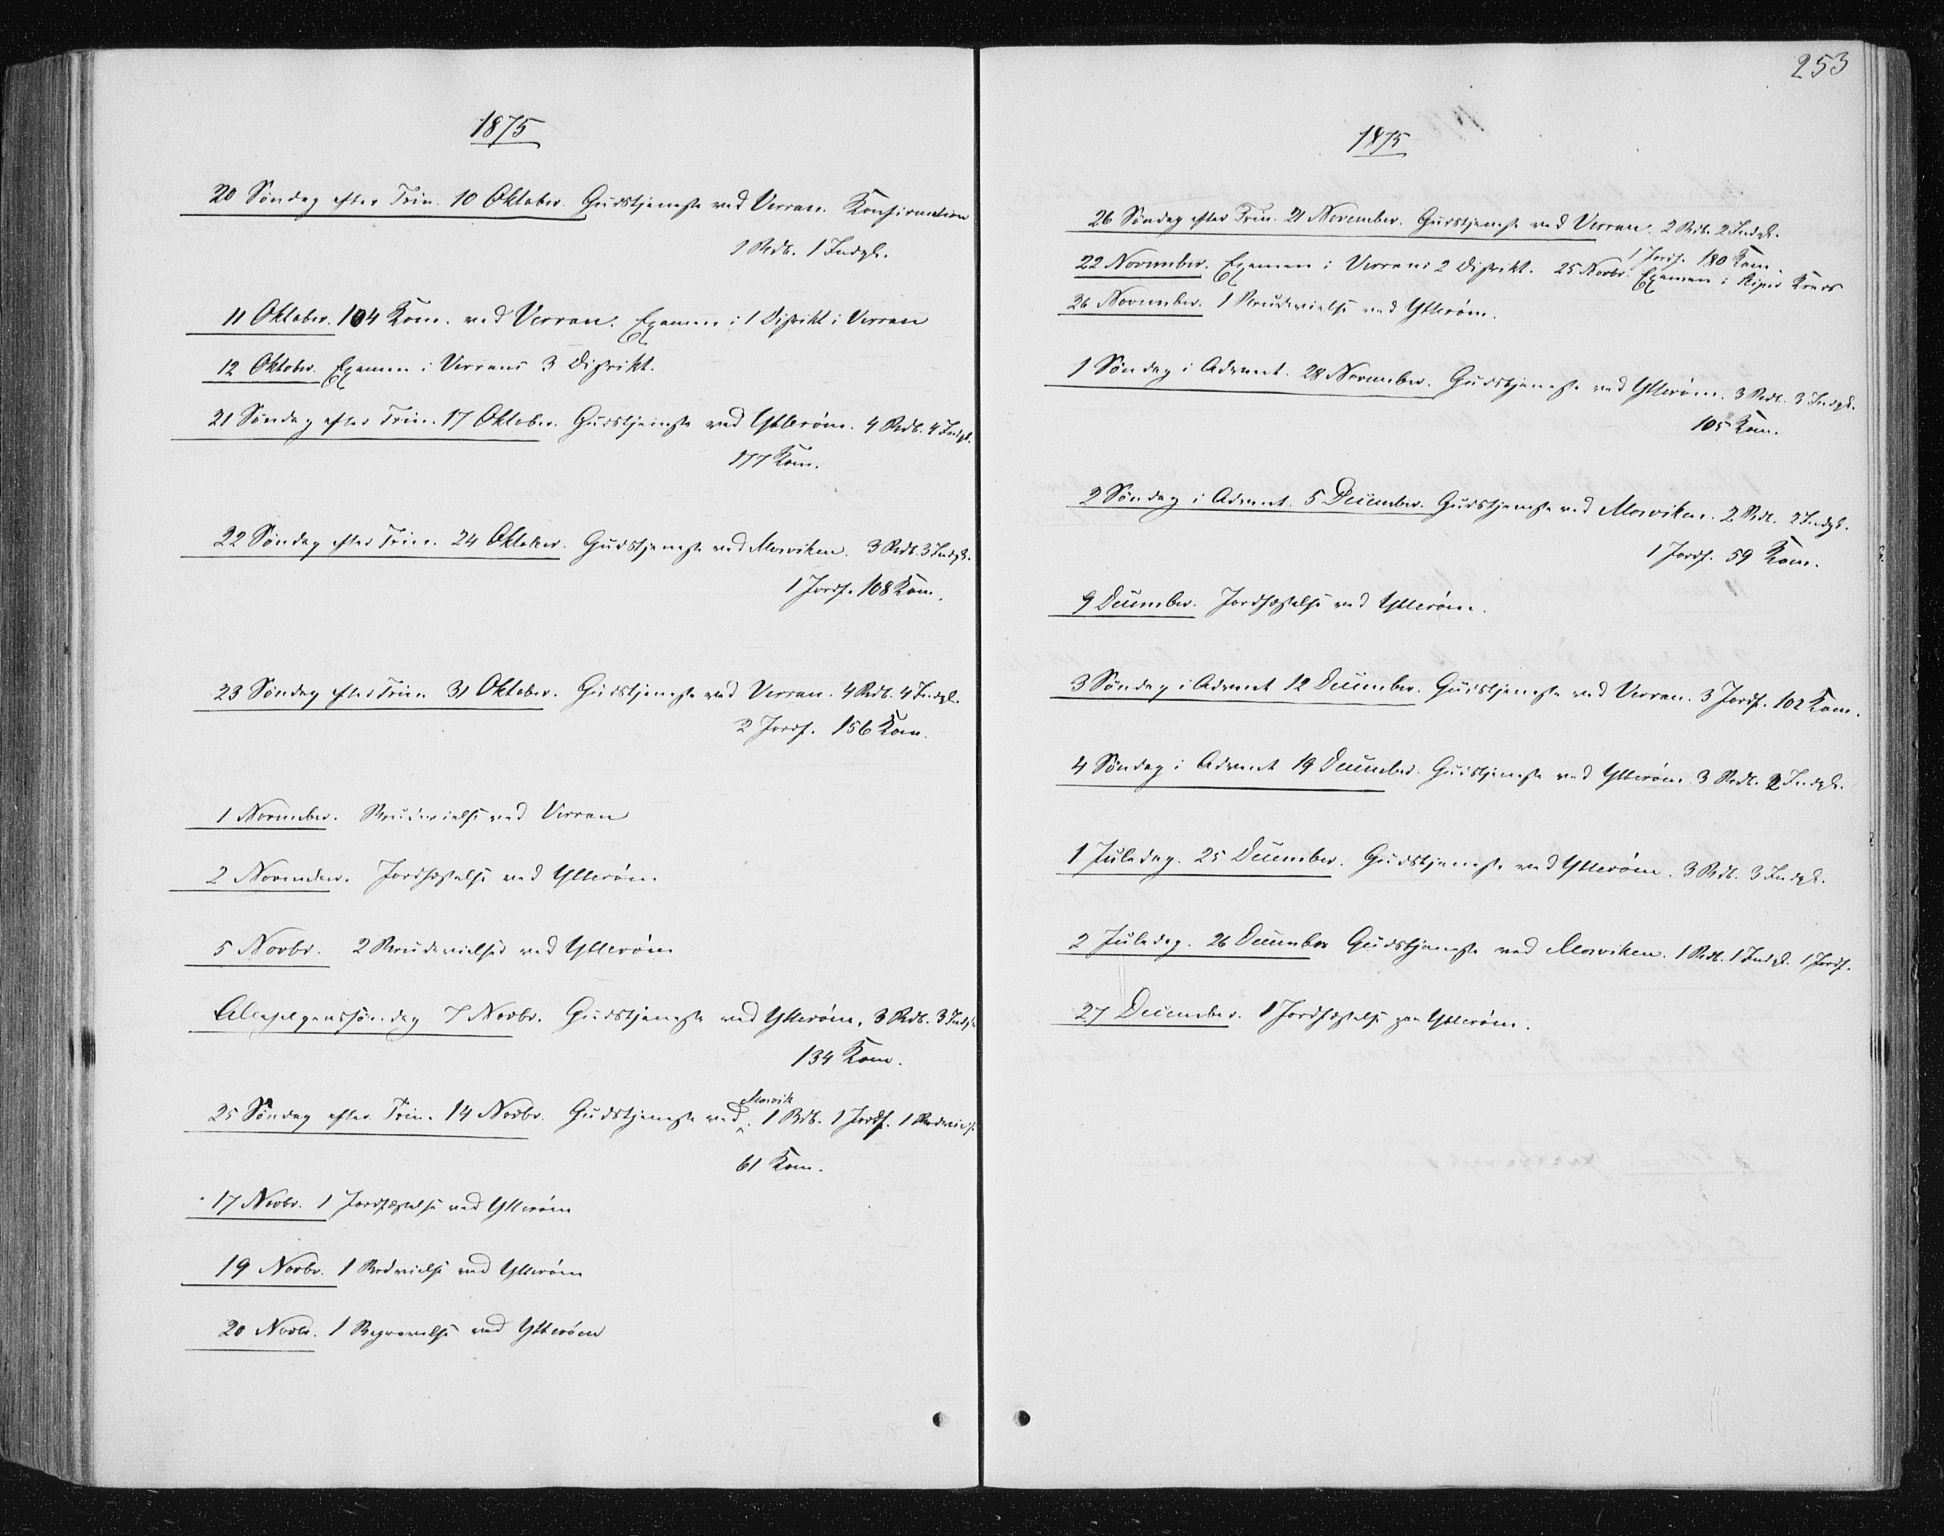 1875
20 Søndag efter Trin. 10 Oktober. Gudstjeneste ved Verran. Konfirmation
1 Rdb. 1 Indgk.
11 Oktober. 104 Kom. ved Verran. Examen i 1 Distrikt i Verran
12 Oktober. Examen i Verrans 3 Distrikt.
21 Søndag efter Trin. 17 Oktober. Gudstjeneste ved Ytterøen. 4 Rdb. 4 Indgk.
177 Kom.
22 Søndag efter Trin. 24 Oktober. Gudstjeneste ved Mosviken. 3 Rdb. 3 Indgk.
1 Jordf. 108 Kom.
23 Søndag efter Trin. 31 Oktober. Gudstjeneste ved Verran. 4 Rdb. 4 Indgk.
2 Jordf. 156 Kom.
1 November. Brudevielse ved Verran
2 November. Jordfæstelse ved Ytterøen.
5 Novbr. 2 Brudevielser ved Ytterøen
Allehelgenssøndag 7 Novbr. Gudstjeneste ved Ytterøen. 3 Rdb. 3 Indgk
134 Kom.
25 Søndag efter Trin. 14 Novbr. Gudstjeneste ved Mosvik. 1 Rdb. 1 Jordf. 1
61 Kom.
17 Novbr. 1 Jordfæstelse ved Ytterøen
19 Novbr. 1 Brdvielse ved Ytterøen
20 Novbr. 1 Begravelse ved Ytterøen
253
1875
26 Søndag efter Trin. 21 November. Gudstjeneste ved Verran. 2 Rdb. 2 Indgk.
1 Jordf. 180 Kom.
22 November. Examen i Verrans 2 Distrikt. 25 Novbr. Examen i Kreds
26 November. 1 Brudevielse ved Ytterøen.
1 Søndag i Advent. 28 November. Gudstjeneste ved Ytterøen. 3 Rdb. 3 Indgk.
105 Kom.
2 Søndag i Advent. 5 December. Gudstjeneste ved Mosviken. 2 Rdb. 2 Indgk.
1 Jordf. 59 Kom.
9 December. Jordfæstelse ved Ytterøen.
3 Søndag i Advent 12 December. Gudstjeneste ved Verran. 3 Jordf. 102 Kom.
4 Søndag i Advent 19 December. Gudstjeneste ved Ytterøen. 3 Rdb. 2 Indgk.
1 Juledag. 25 December. Gudstjeneste ved Ytterøen. 3 Rdb. 3 Indgk.
2 Juledag. 26 December Gudstjeneste ved Mosviken. 1 Rdb. 1 Indgk. 1 Jordf.
27 December. 1 Jordfæstelse paa Ytterøen.